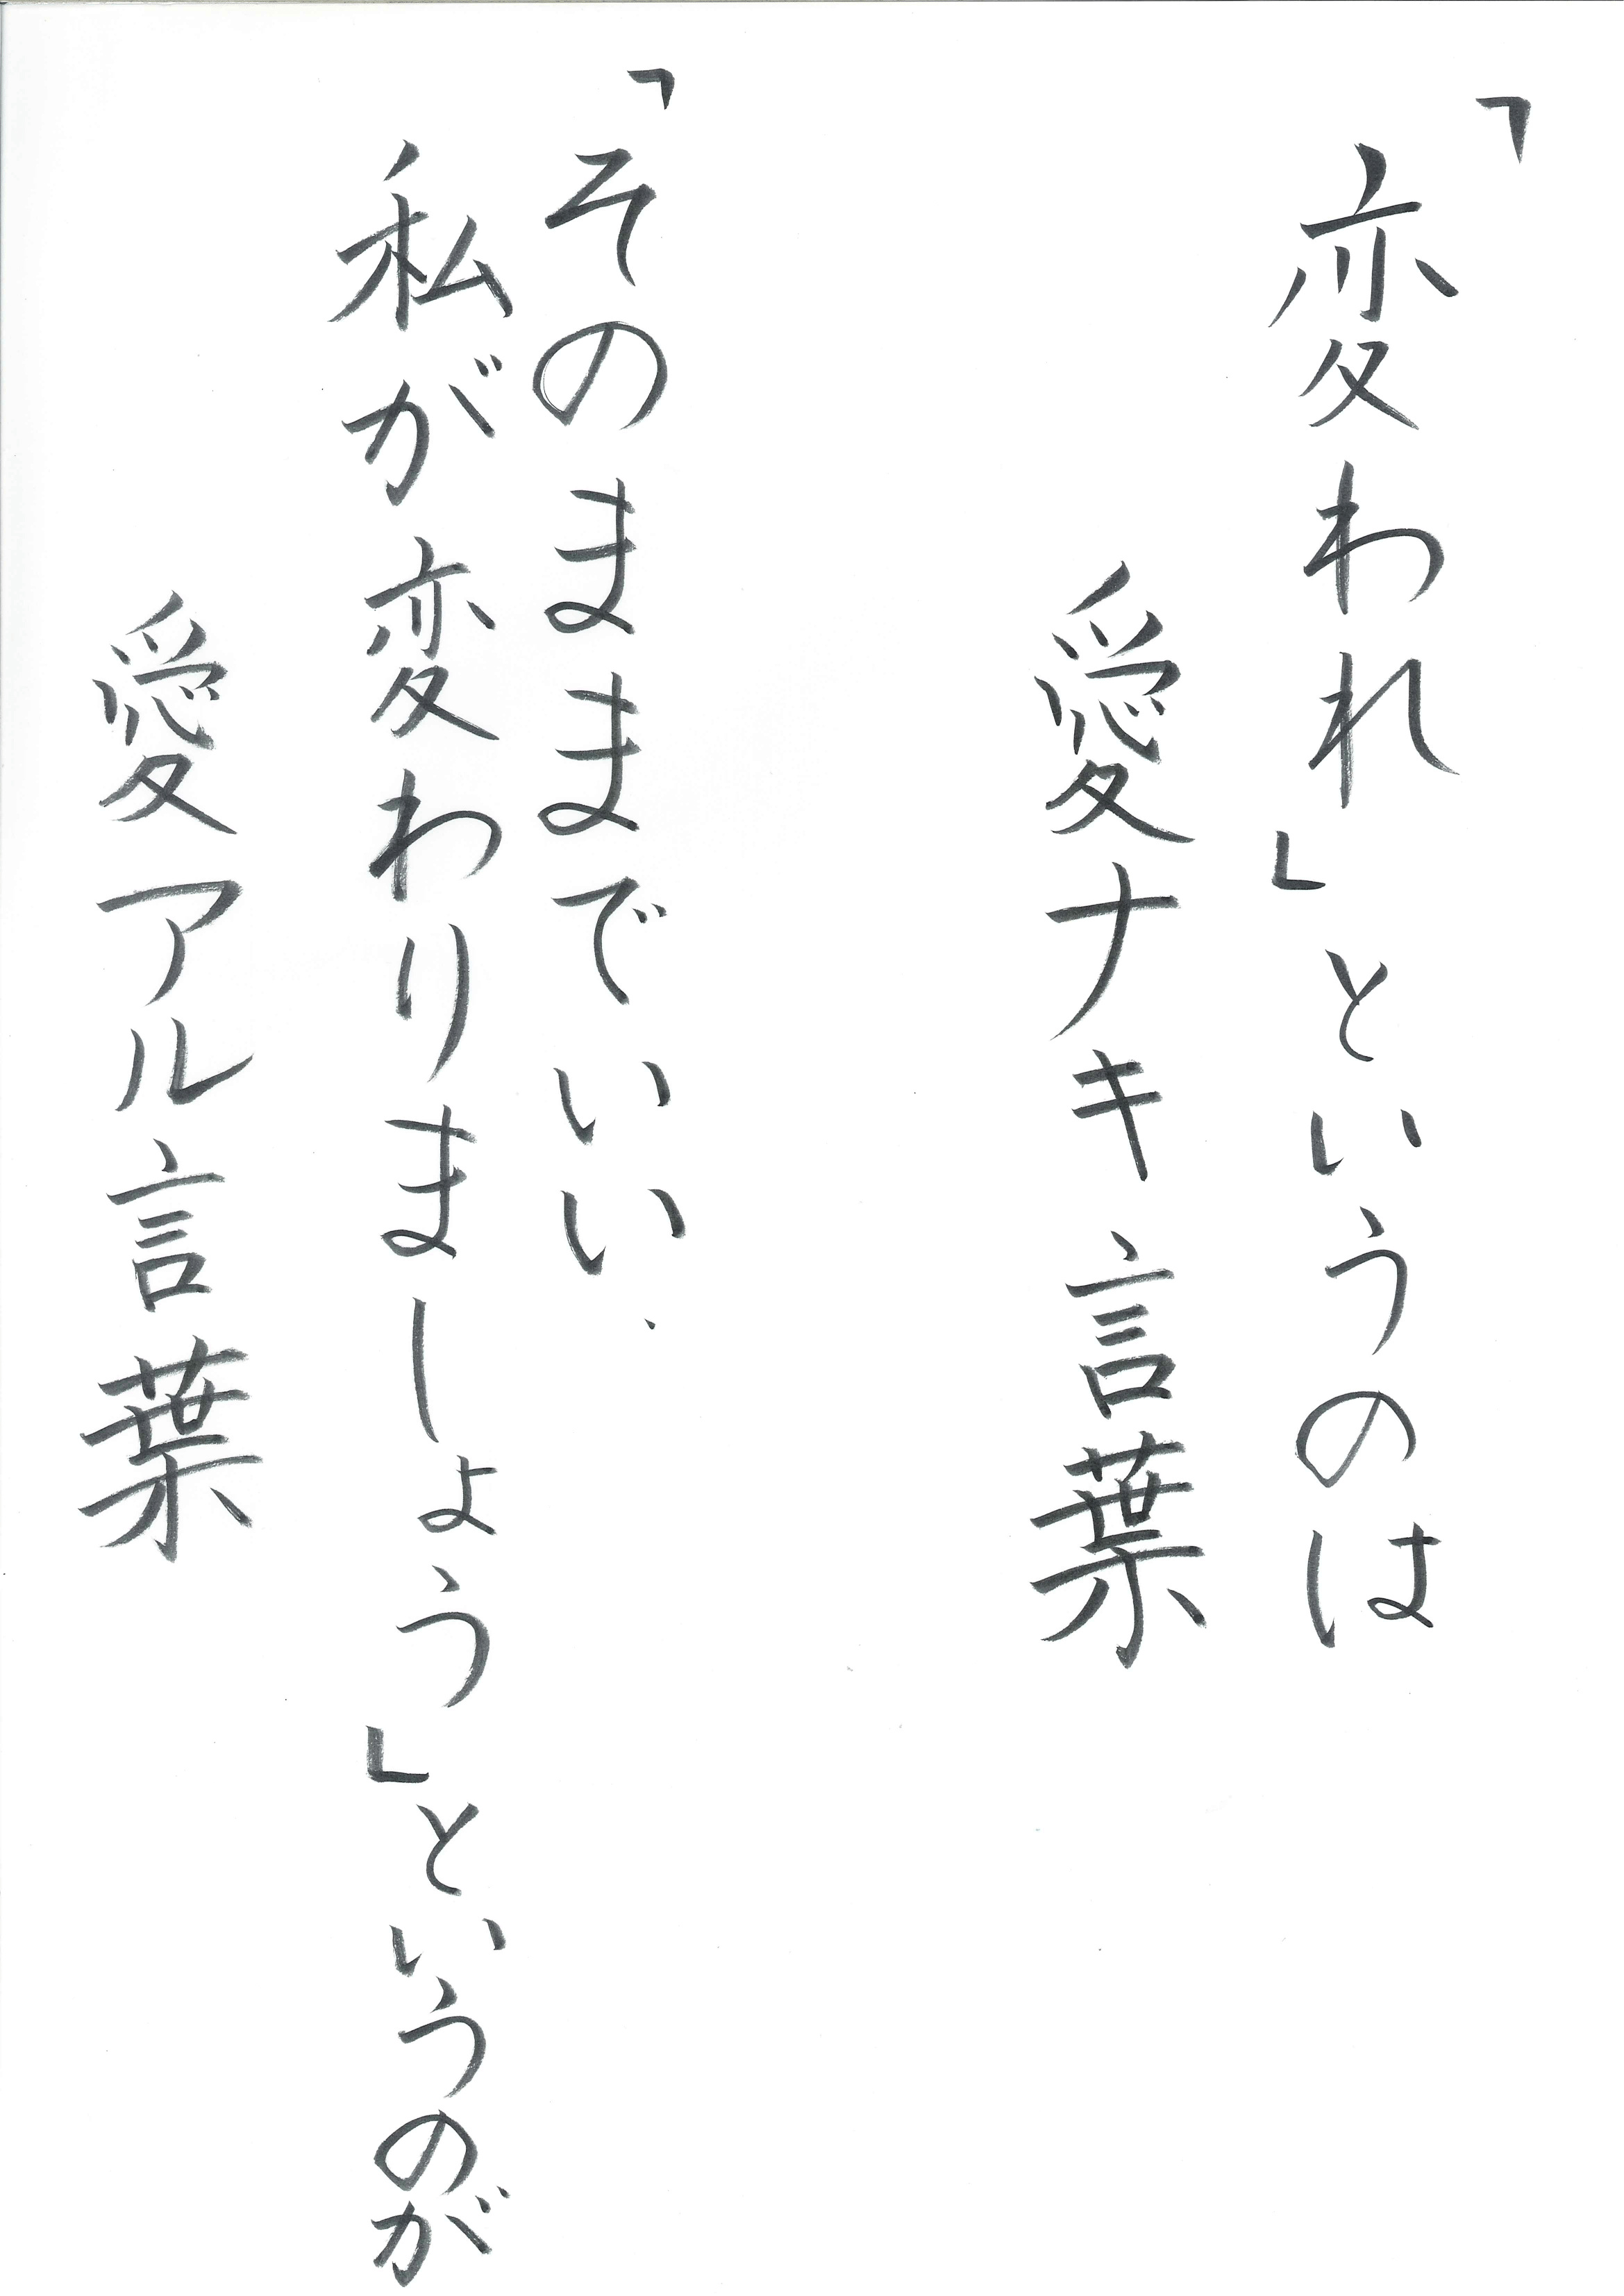 「変われ」というのは
愛ナキ言葉
「そのままでいい、
私が変わりましょう」というのが
愛アル言葉